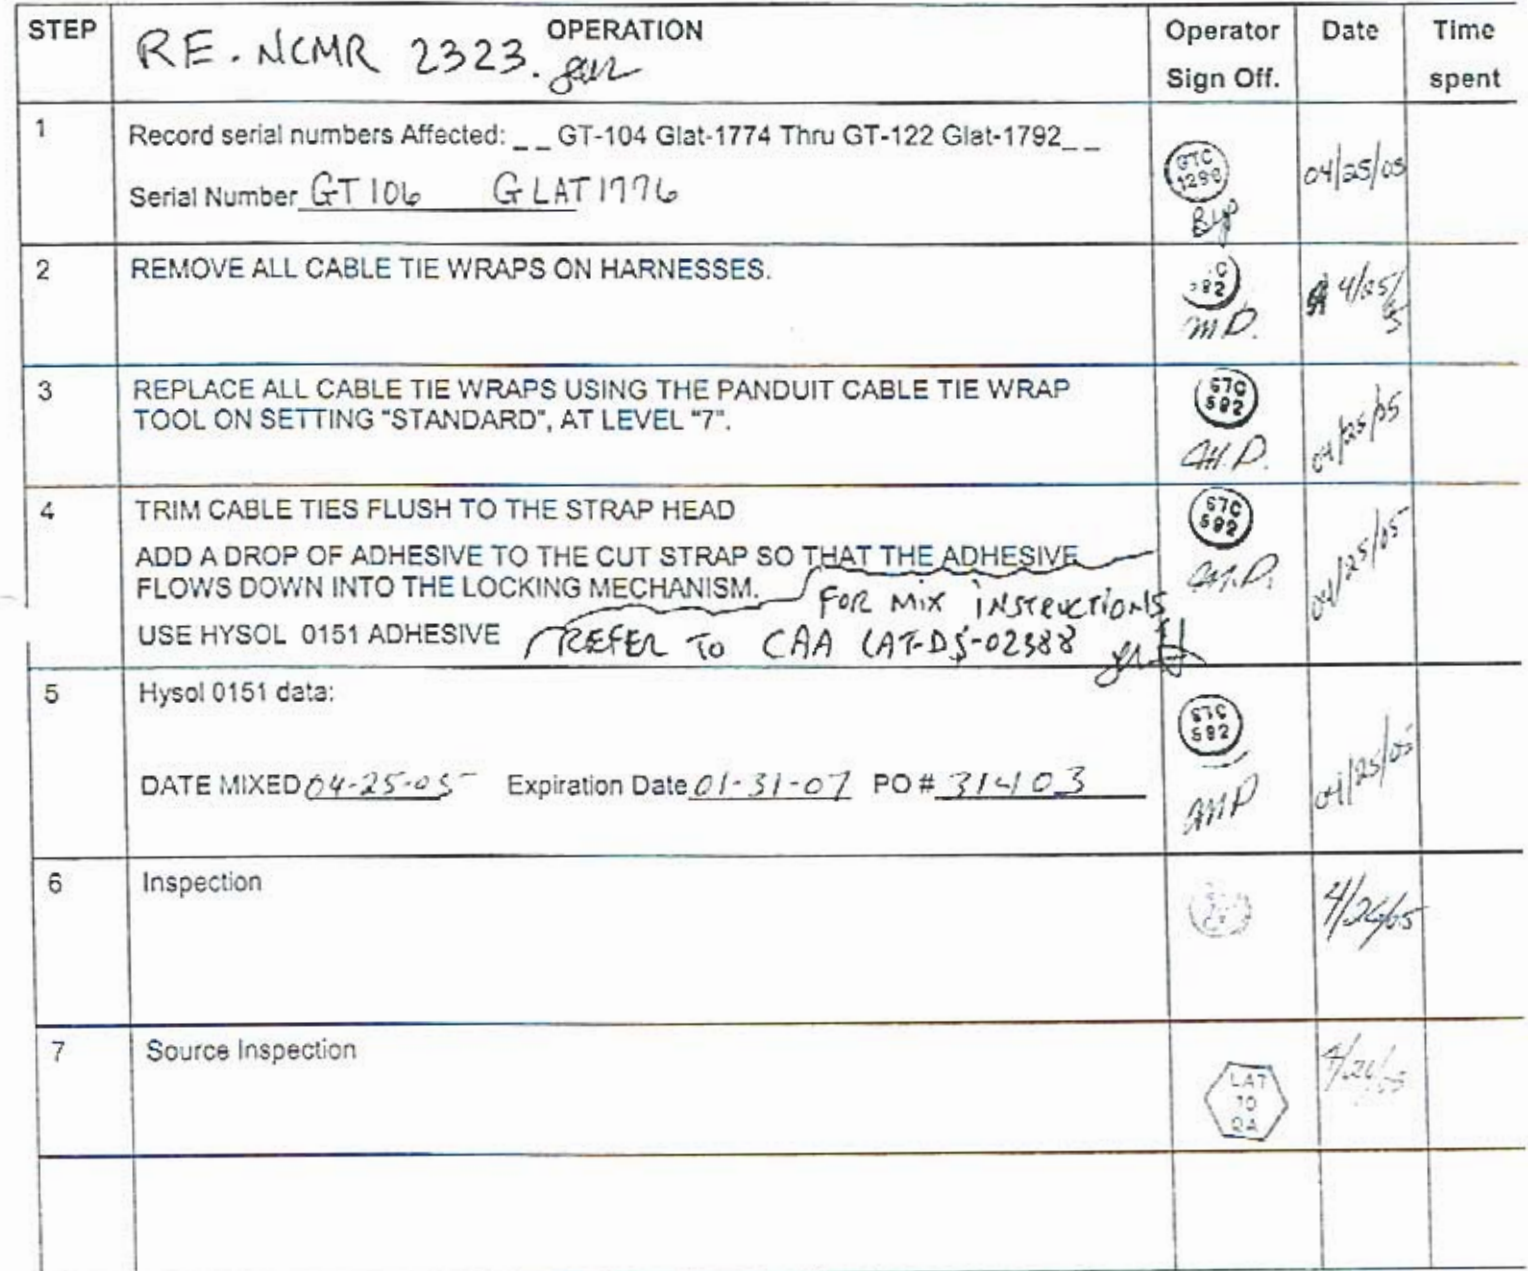 STEP OPERATION Operator Sign Off. Date Time spent
RE. NCMR 2323.
1 Record serial numbers Affected: _ _ GT-104 Glat-1774 Thru GT-122 Glat-1792_ _
Serial Number GT106 GLAT1776
GTC
04/25/05
2 REMOVE ALL CABLE TIE WRAPS ON HARNESSES.
M.D.
4/25/
5
3 REPLACE ALL CABLE TIE WRAPS USING THE PANDUIT CABLE TIE WRAP
TOOL ON SETTING "STANDARD", AT LEVEL "7".
GTC
592
M.D.
04/25/05
4 TRIM CABLE TIES FLUSH TO THE STRAP HEAD
ADD A DROP OF ADHESIVE TO THE CUT STRAP SO THAT THE ADHESIVE
FLOWS DOWN INTO THE LOCKING MECHANISM.
FOR MIX INSTRUCTIONS
USE HYSOL 0151 ADHESIVE
REFER TO CAA LAT-DS-02388
GTC
592
M.D.
04/25/05
5 Hysol 0151 data:
DATE MIXED 04-25-05 Expiration Date 01-31-07 PO # 31403
592
MD
04/25/05
6 Inspection
4/26/05
7 Source Inspection
LAT
70
QA
4/26/05